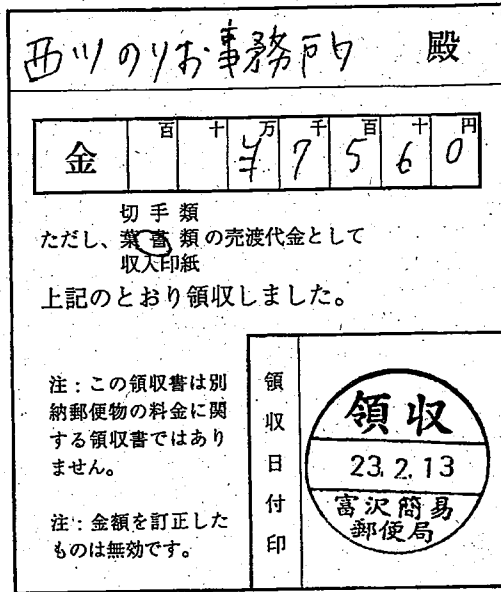 西川のりお事務所 殿
金 百 十 万 千 百 十 円
¥ 7 5 6 0
切手類
ただし、葉書類の売渡代金として
収入印紙
上記のとおり領収しました。
注:この領収書は別
納郵便物の料金に関
する領収書ではあり
ません。
注:金額を訂正した
ものは無効です。
領収日付印
領収
23.2.13
富沢簡易
郵便局